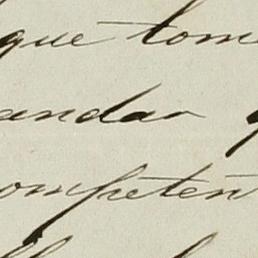 que tom
andar
ompeten